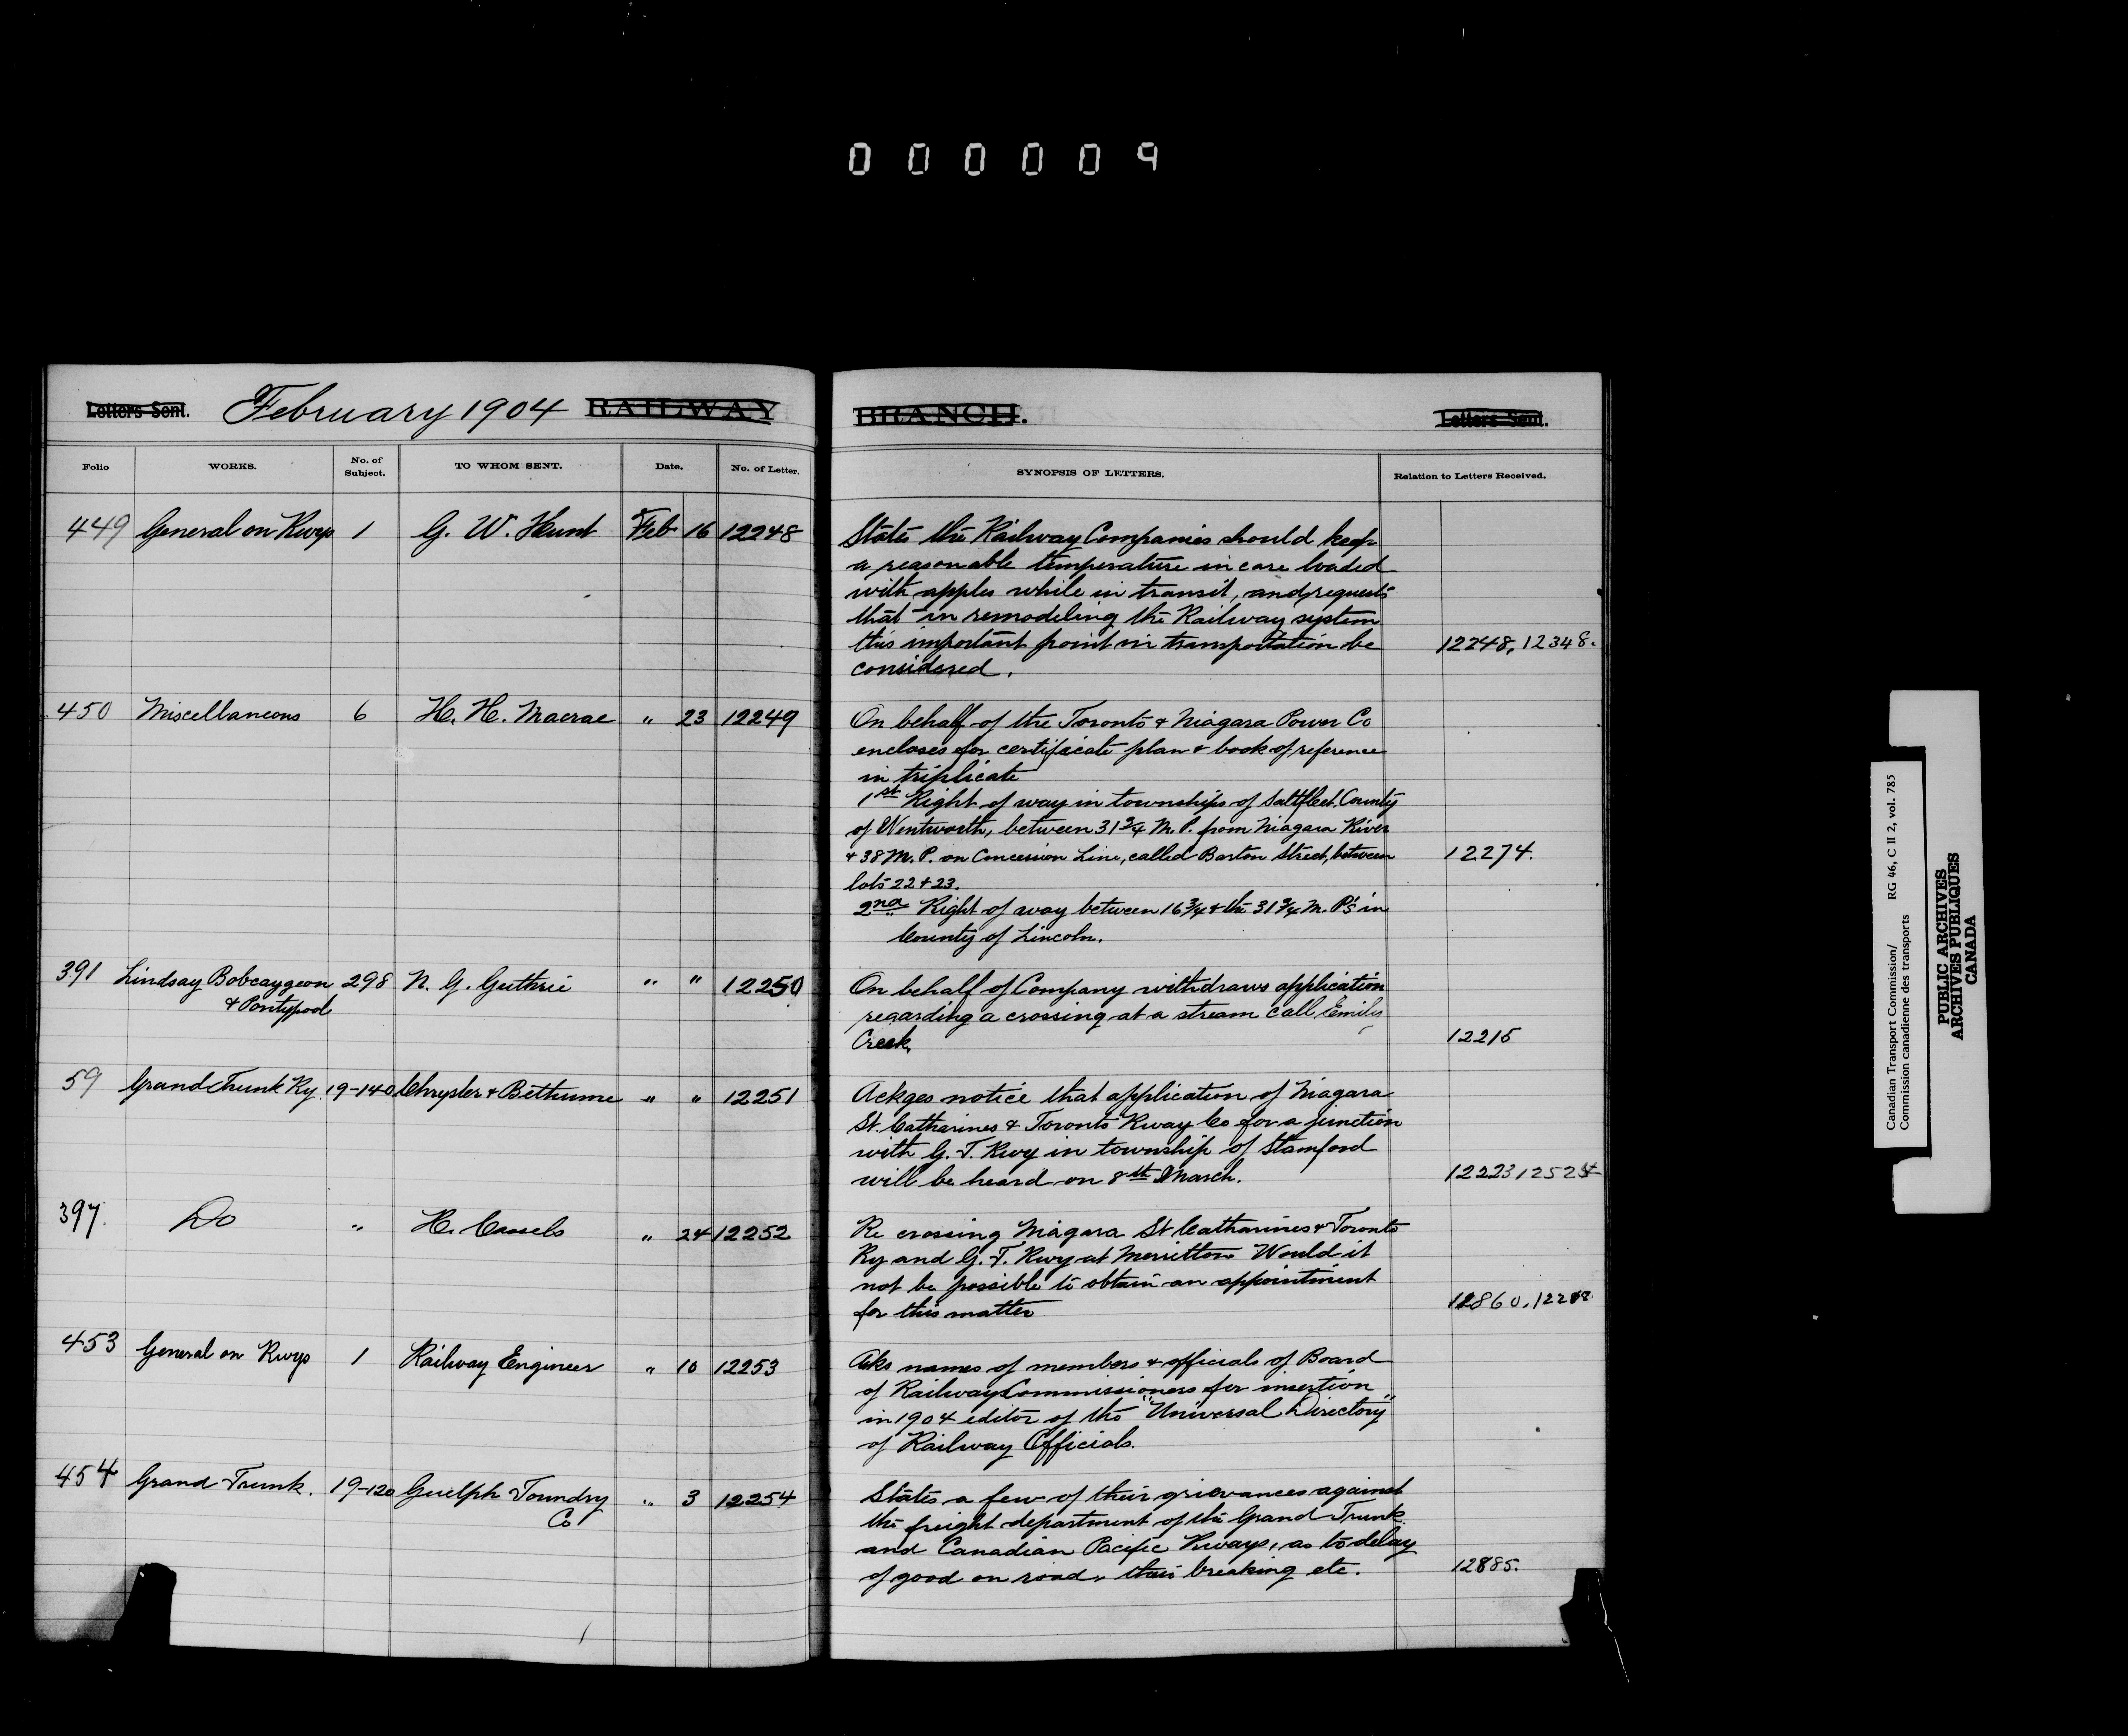 000009
Letters Sent. February 1904 RAILWAY BRANCH. Letters Sent.
Folio WORKS. No. of Subject. TO WHOM SENT. Date. No. of Letter. SYNOPSIS OF LETTERS. Relation to Letters Received.
449 General on Rwys 1 G. W. Hunt Feb 16 12248 States the Railway Companies should keep
a reasonable temperature in cars loaded
with apples while in transit, and requests
that in remodeling the Railway system
this important point in transportation be 12248, 12348.
considered.
450 Miscellaneous 6 H. H. Macrae " 23 12249 On behalf of the Toronto & Niagara Power Co
encloses for certificate plan & book of reference
in triplicate
1st Right of way in townships of Saltfleet, County
of Wentworth, between 31 3/4 M. P. from Niagara River
& 38 M. P. on Concession Line, called Barton Street, between 12274.
lots 22 & 23.
2nd Right of way between 16 3/4 & the 31 3/4 M. P's in
County of Lincoln.
391 Lindsay Bobcaygeon 298 N. G. Guthrie " " 12250 On behalf of Company withdraws application
& Pontypool regarding a crossing at a stream call Emily
Creek. 12215
59 Grand Trunk Ry. 19-140 Chrysler & Bethune " " 12251 Ackges notice that application of Niagara
St. Catharines & Toronto Rway Co for a junction
with G. T. Rwy in township of Stamford
will be heard on 8th March. 12223
397. Do " H. Cassels " 24 12252 Re crossing Niagara St Catharines & Toronto
Ry and G. T. Rwy at Merritton Would it
not be possible to obtain an appointment
for this matter 12860,
453 General on Rwys 1 Railway Engineer " 10 12253 Asks names of members & officials of Board
of Railway Commissioners for insertion
in 1904 editor of the "Universal Directory"
of Railway Officials.
454 Grand Trunk. 19-120 Guelph Foundry " 3 12254 States a few of their grievances against
Co the freight department of the Grand Trunk
and Canadian Pacific Rways, as to delay
of good on road, their breaking etc. 12885.
Canadian Transport Commission/ RG 46, C II 2, vol. 785
Commission canadienne des transports
PUBLIC ARCHIVES
ARCHIVES PUBLIQUES
CANADA